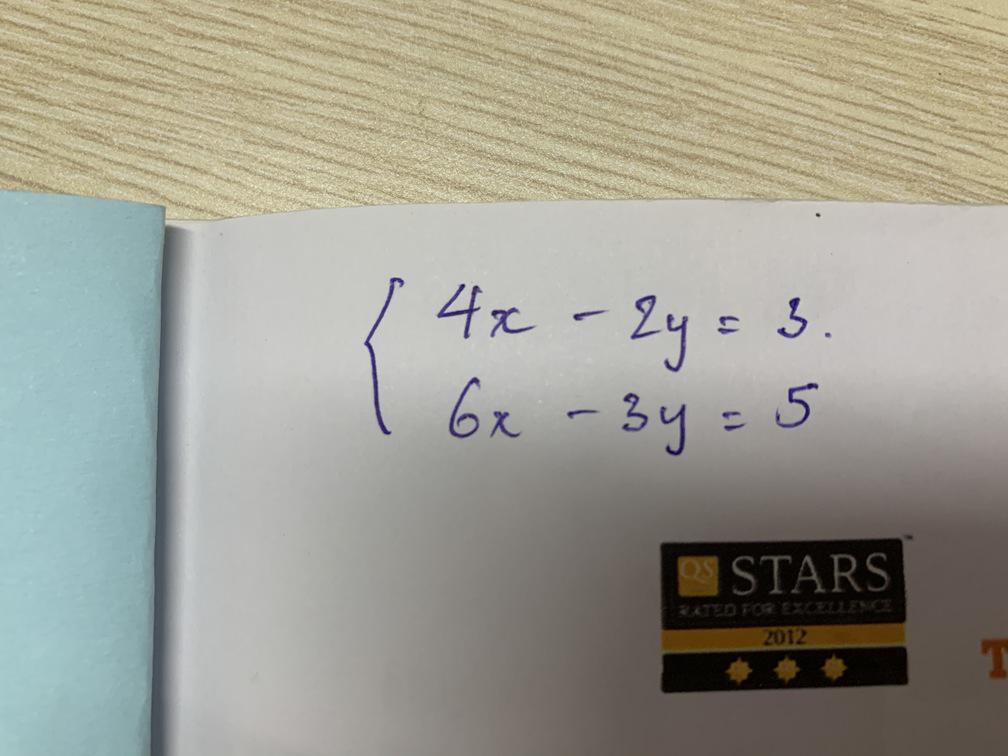 4x - 2y = 3.
6x - 3y = 5
QS STARS™
RATED FOR EXCELLENCE
2012
T